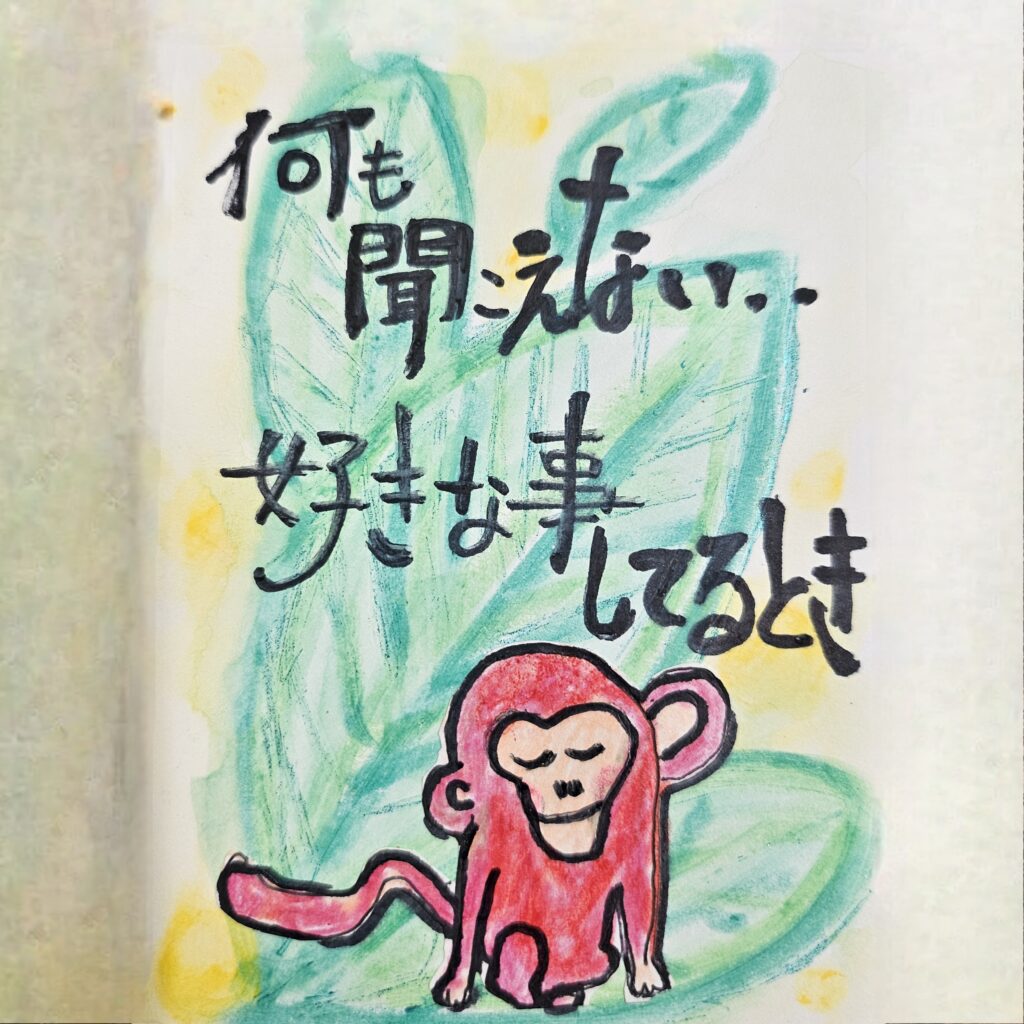 何も
聞こえない..
好きな事
してるとき